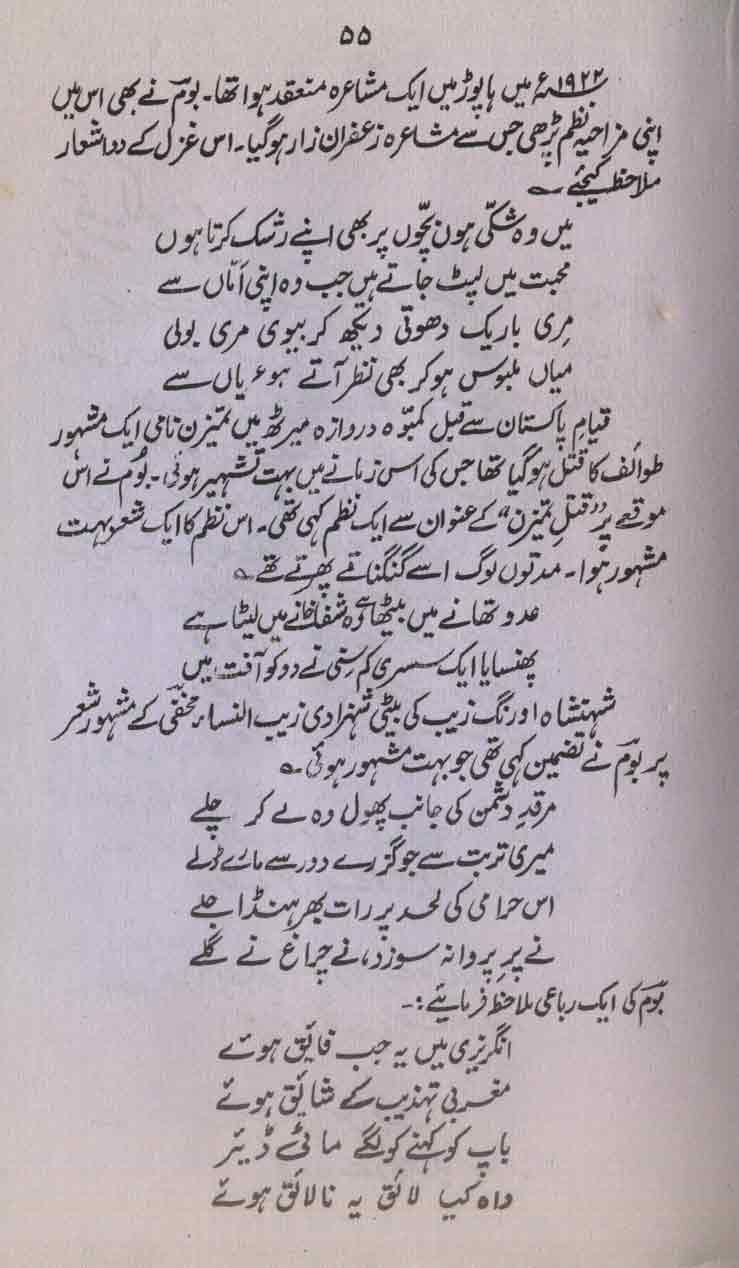 ۵۵
۱۹۲۲ء میں ہاپوڑ میں ایک مشاعرہ منعقد ہوا تھا۔ بومؔ نے بھی اس میں
اپنی مزاحیہ نظم پڑھی جس سے مشاعرہ زعفران زار ہوگیا۔ اس غزل کے دو اشعار
ملاحظہ کیجئے ؎
میں وہ شکّی ہوں بچّوں پر بھی اپنے رشک کرتا ہوں
محبت میں لپٹ جاتے ہیں جب وہ اپنی اَمّاں سے
مِری باریک دھوتی دیکھ کر بیوی مری بولی
میاں ملبوس ہو کر بھی نظر آتے ہو عریاں سے
قیامِ پاکستان سے قبل کمبوہ دروازہ میرٹھ میں تمیزن نامی ایک مشہور
طوائف کا قتل ہوگیا تھا جس کی اس زمانے میں بہت تشہیر ہوئی۔ بومؔ نے اس
موقعے پر "قتلِ تمیزن" کے عنوان سے ایک نظم کہی تھی۔ اس نظم کا ایک شعر بہت
مشہور ہوا۔ مدتوں لوگ اسے گنگناتے پھرتے تھے ؎
عدو تھانے میں بیٹھا ہے وہ شفاخانے میں لیٹا ہے
پھنسایا ایک سسری کم سِنی نے دو کو آفت میں
شہنشاہ اورنگ زیب کی بیٹی شہزادی زیب النساء مخفیؔ کے مشہور شعر
پر بومؔ نے تضمین کہی تھی جو بہت مشہور ہوئی ؎
مرقدِ دشمن کی جانب پھول وہ لے کر چلے
میری تربت سے جو گزرے دور سے مارے ڈلے
اس حرامی کی لحد پر رات بھر ہنڈا جلے
نے پرِ پروانہ سوزد، نے چراغ نے گلے
بومؔ کی ایک رباعی ملاحظ فرمایئے :۔
انگریزی میں یہ جب فایق ہوئے
مغربی تہذیب کے شائق ہوئے
باپ کو کہنے کو لگے مائی ڈیئر
واہ کیا لائق یہ نالائق ہوئے